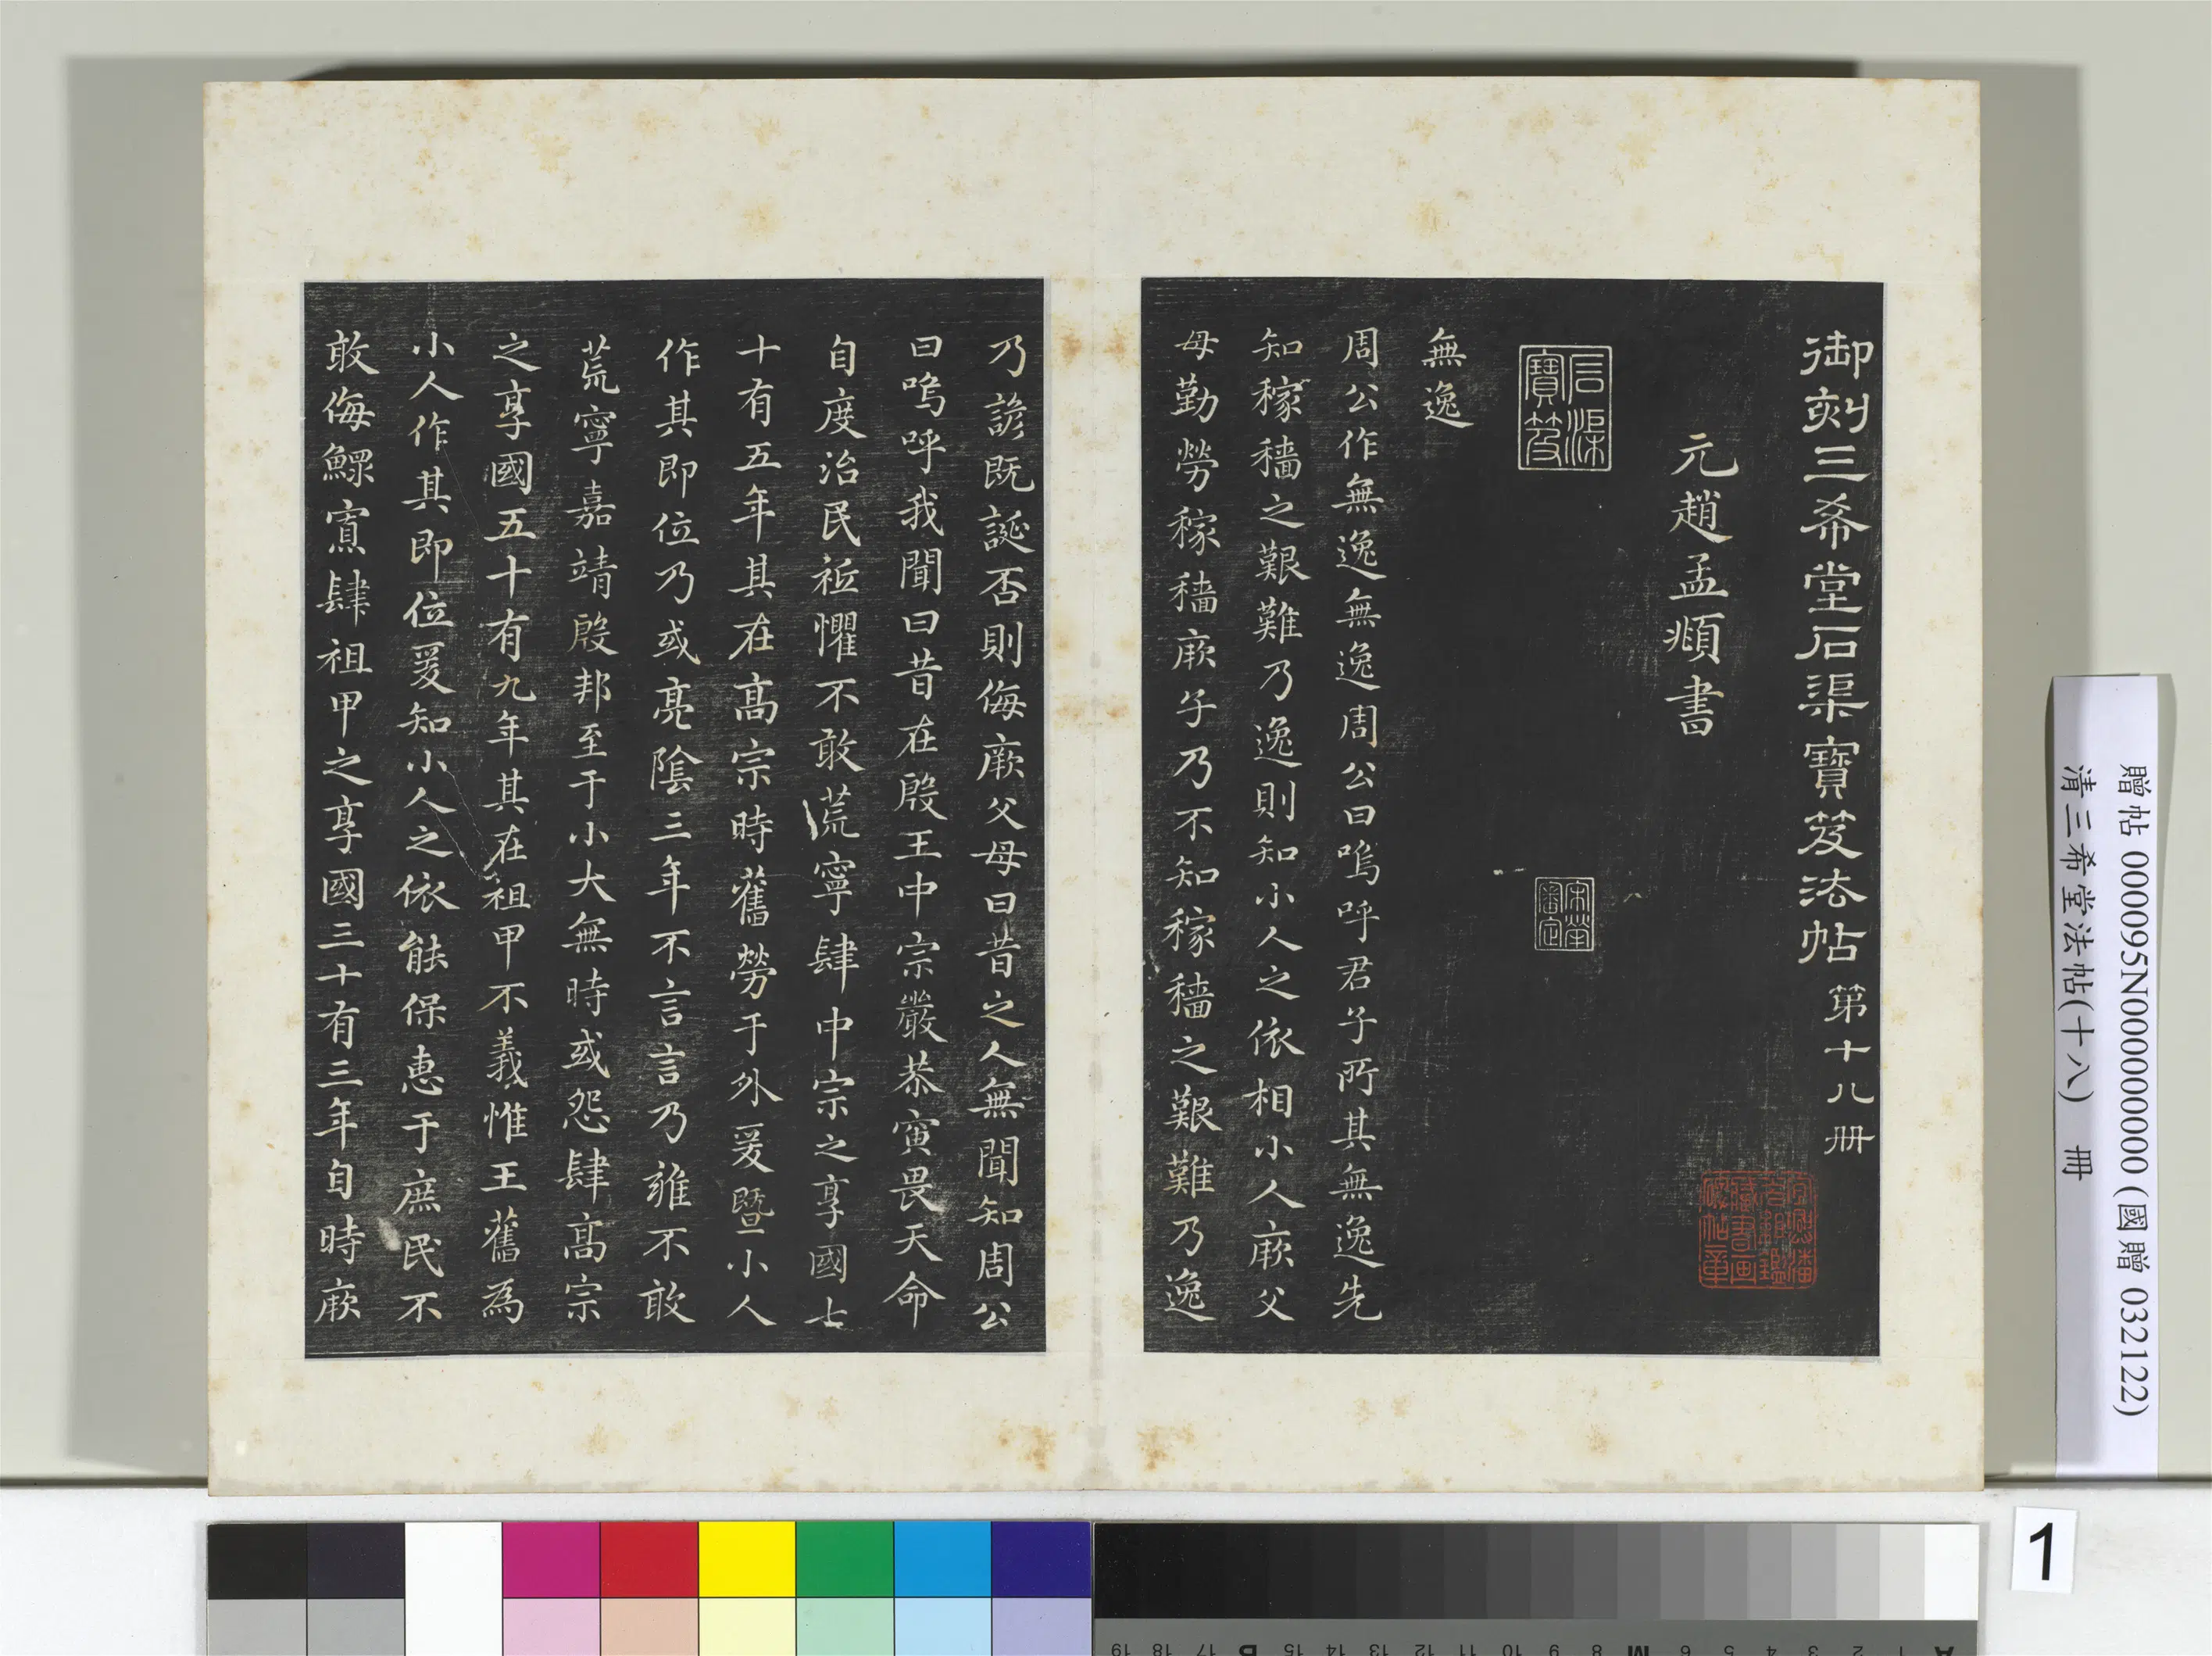 御刻三希堂石渠寶笈法帖 第十八冊
元趙孟頫書
石渠寶笈
無逸
周公作無逸無逸周公曰嗚呼君子所其無逸先
知稼穡之艱難乃逸則知小人之依相小人厥父
母勤勞稼穡厥子乃不知稼穡之艱難乃逸
乃諺既誕否則侮厥父母曰昔之人無聞知周公
曰嗚呼我聞曰昔在殷王中宗嚴恭寅畏天命
自度治民祗懼不敢荒寧肆中宗之享國七
十有五年其在高宗時舊勞于外爰暨小人
作其即位乃或亮陰三年不言言乃雍不敢
荒寧嘉靖殷邦至于小大無時或怨肆高宗
之享國五十有九年其在祖甲不義惟王舊為
小人作其即位爰知小人之依能保惠于庶民不
敢侮鰥寡肆祖甲之享國三十有三年自時厥
贈帖 000095N000000000 (國贈 032122)
清三希堂法帖(十八) 冊
1
A 1 2 3 4 5 6 M 8 9 10 11 12 13 14 15 B 17 18 19